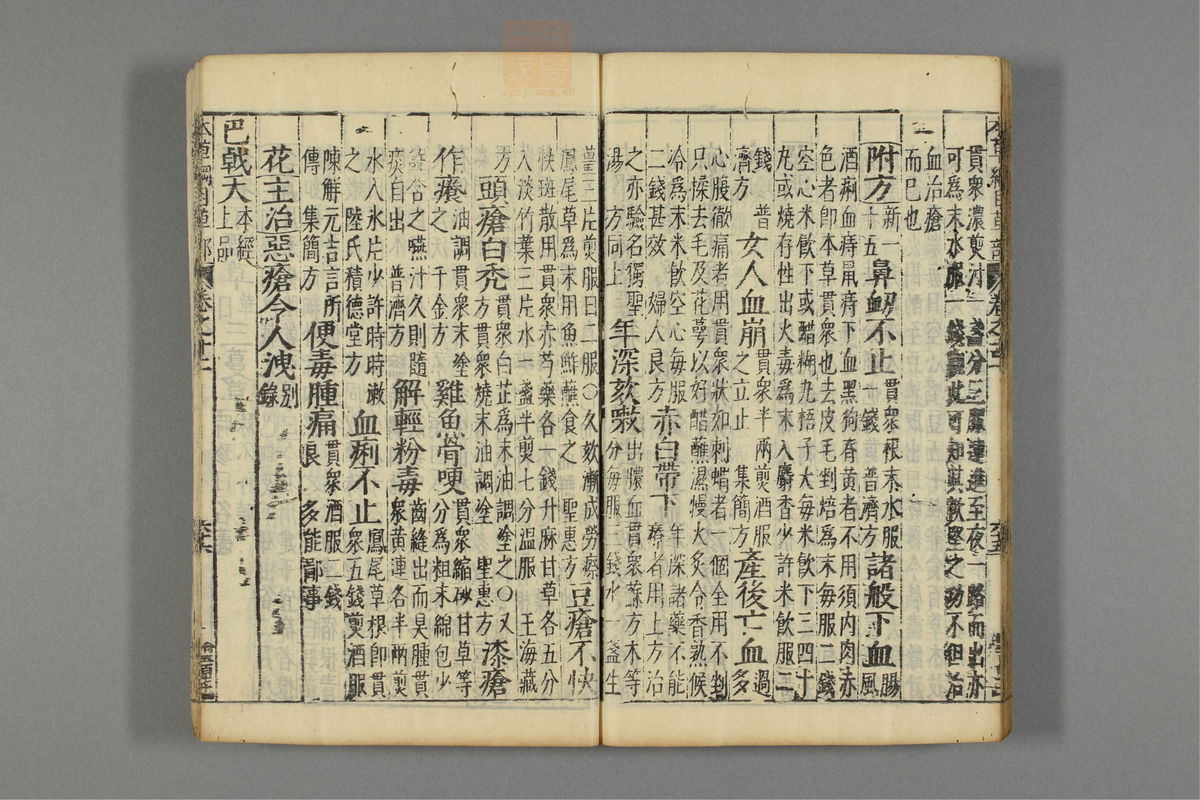 貫衆濃煎汁一盞分三服連進至夜一咯而出亦
可爲末水服一錢觀此可知其軟堅之功不但治
血治瘡
而已也
附方 新十五 鼻衄不止 貫衆根末水服一錢 普濟方 諸般下血 腸風
酒痢血痔鼠痔下血黑狗脊黄者不用須内肉赤
色者卽本草貫衆也去皮毛剉焙爲末每服二錢
空心米飲下或醋糊丸梧子大每米飲下三四十
丸或燒存性出火毒爲末入麝香少許米飲服二
錢 普濟方 女人血崩 貫衆半兩煎酒服之立止 集簡方 產後亡血 過多
心腹徹痛者用貫衆狀如刺蝟者一個全用不剉
只揉去毛及花萼以好醋蘸濕慢火炙令香熟候
冷爲末米飲空心每服
二錢甚效 婦人良方 赤白帶下 年深諸藥不能療者用上方治
之亦驗名獨聖湯 方同上 年深欬嗽 出膿血貫衆蘇方木等分每服三錢水一盞生
薑三片煎服日二服○久欬漸成勞瘵
鳳尾草爲末用魚鮓蘸食之 聖惠方 豆瘡不快
快斑散用貫衆赤芍藥各一錢升麻甘草各五分
入淡竹葉三片水一盞半煎七分温服 王海藏
方 頭瘡白禿 貫衆白芷爲末油調塗之○又方貫衆燒末油調塗 聖惠方 漆瘡
作癢 油調貫衆末塗之 千金方 雞魚骨哽 貫衆縮砂甘草等分爲粗末綿包少
許含之嚥汁久則隨痰自出 普濟方 解輕粉毒 齒縫出血臭腫貫衆黄連各半兩煎
水入氷片少許時時漱之 陸氏積德堂方 血痢不止 鳳尾草根卽貫衆五錢煎酒服
陳解元吉言所傳 集簡方 便毒腫痛 貫衆酒服二錢良 多能鄙事
花主治惡瘡令人洩 别錄
巴戟天 本經上品